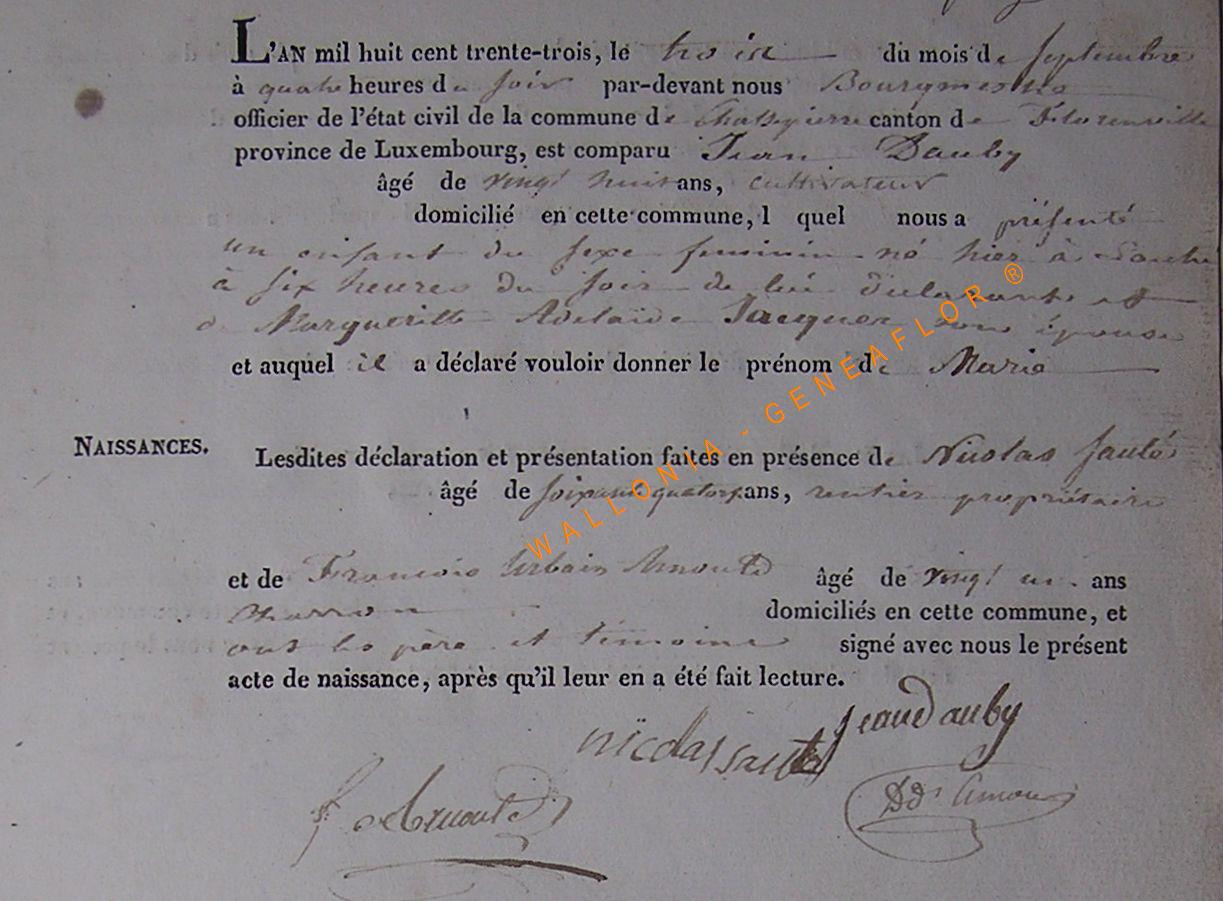 L'AN mil huit cent trente-trois, le trois du mois de Septembre
à quatre heures du soir par-devant nous Bourgmestre
officier de l'état civil de la commune de Chassepierre canton de Florenville
province de Luxembourg, est comparu Jean Dauby
âgé de vingt huit ans, cultivateur
domicilié en cette commune, l quel nous a présenté
un enfant du sexe feminin né hier à
à six heures du soir de lui déclarant et
de Margueritte Adelaïde Jacques son épouse
et auquel il a déclaré vouloir donner le prénom de Marie
NAISSANCES.
Lesdites déclaration et présentation faites en présence de Nicolas Sauté
âgé de soixante quatorze ans, rentier propriétaire
et de François Urbain Arnould âgé de vingt un ans
Charron domiciliés en cette commune, et
ont les père et témoins signé avec nous le présent
acte de naissance, après qu'il leur en a été fait lecture.
jean dauby
nicolas sauté
WALLONIA - GENEAFLOR ®